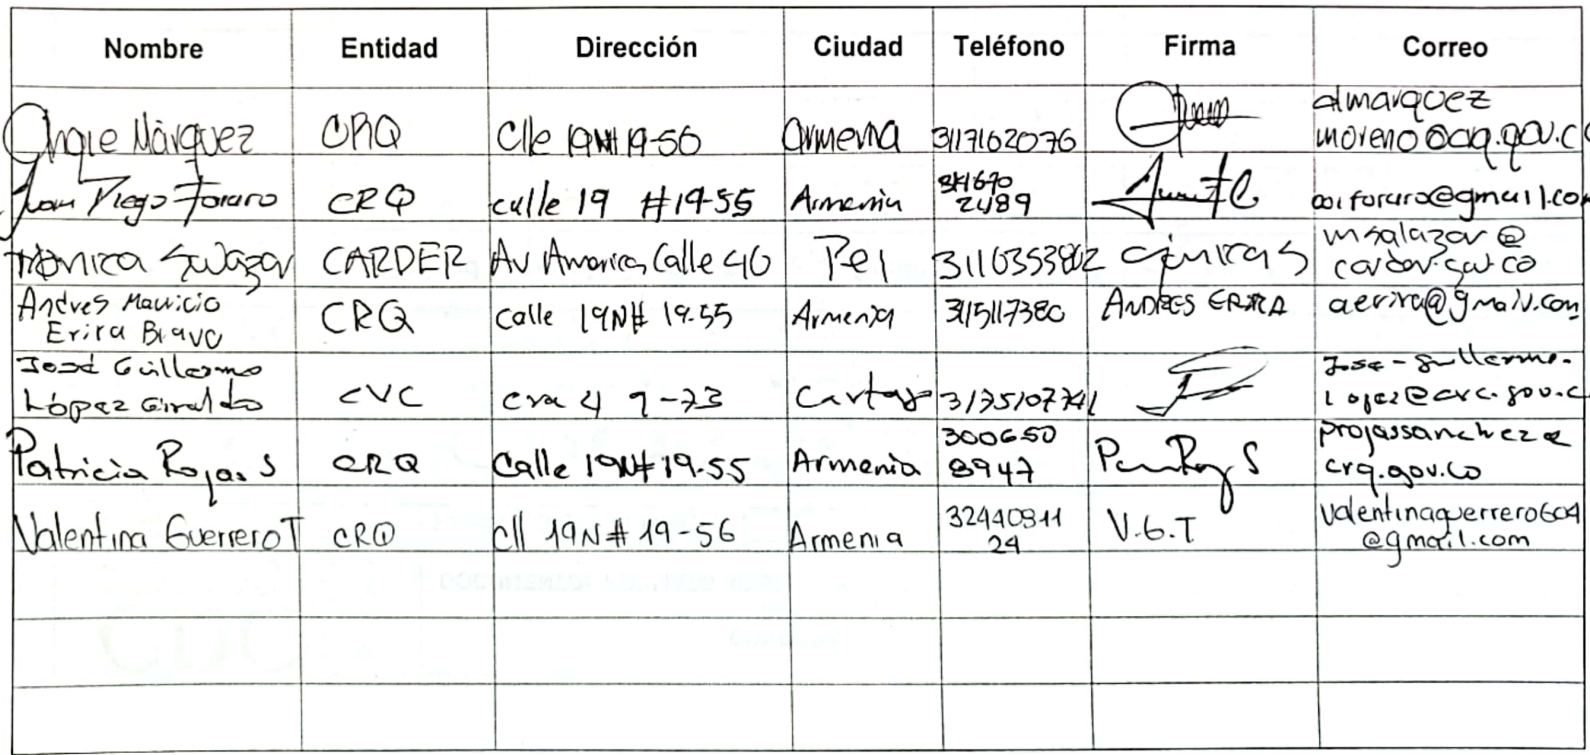 Nombre Entidad Dirección Ciudad Teléfono Firma Correo
Angie Márquez CRQ Clle 19N# 19-56 Armenia 3117162076 almarquez
moreno@crq.gov.co
Juan Diego Foraro CRQ calle 19 #19-55 Armenia 311670
2489 foraro@gmail.com
Mónica Salazar CARDER Av America Calle 46 Pei 3116353802 msalazar@
carder.gov.co
Andres Mauricio
Erira Bravo CRQ Calle 19N# 19-55 Armenia 3115117380 ANDRES ERIRA aerira@gmail.com
José Guillermo
López Giraldo CVC cra 4 9-73 Cartago 3175107741 Jose-guillermo-
lopez@cvc.gov.c
Patricia Rojas S CRQ Calle 19N# 19-55 Armenia 300650
8947 projassanchez@
crq.gov.co
Valentina Guerrero T CRQ cll 19N# 19-56 Armenia 32440911
24 V.G.T valentinaguerrero604
@gmail.com